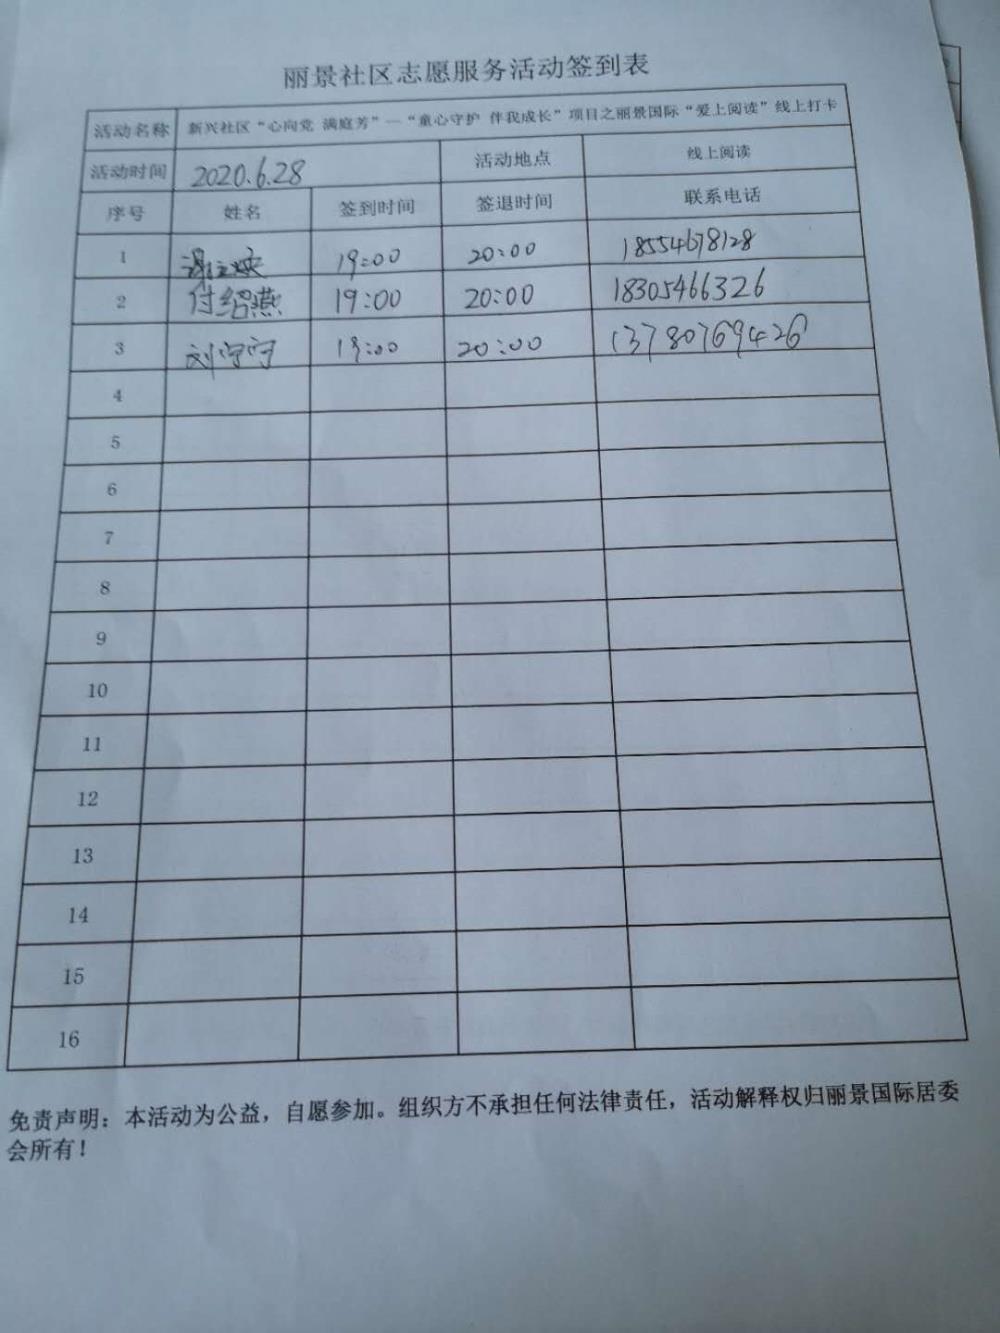 丽景社区志愿服务活动签到表
活动名称 新兴社区“心向党 满庭芳”—“童心守护 伴我成长”项目之丽景国际“爱上阅读”线上打卡
活动时间 2020.6.28 活动地点 线上阅读
序号 姓名 签到时间 签退时间 联系电话
1 19:00 20:00 18554678128
2 付绍燕 19:00 20:00 18305466326
3 刘宁宁 19:00 20:00 13780769426
4
5
6
7
8
9
10
11
12
13
14
15
16
免责声明：本活动为公益，自愿参加。组织方不承担任何法律责任，活动解释权归丽景国际居委
会所有！